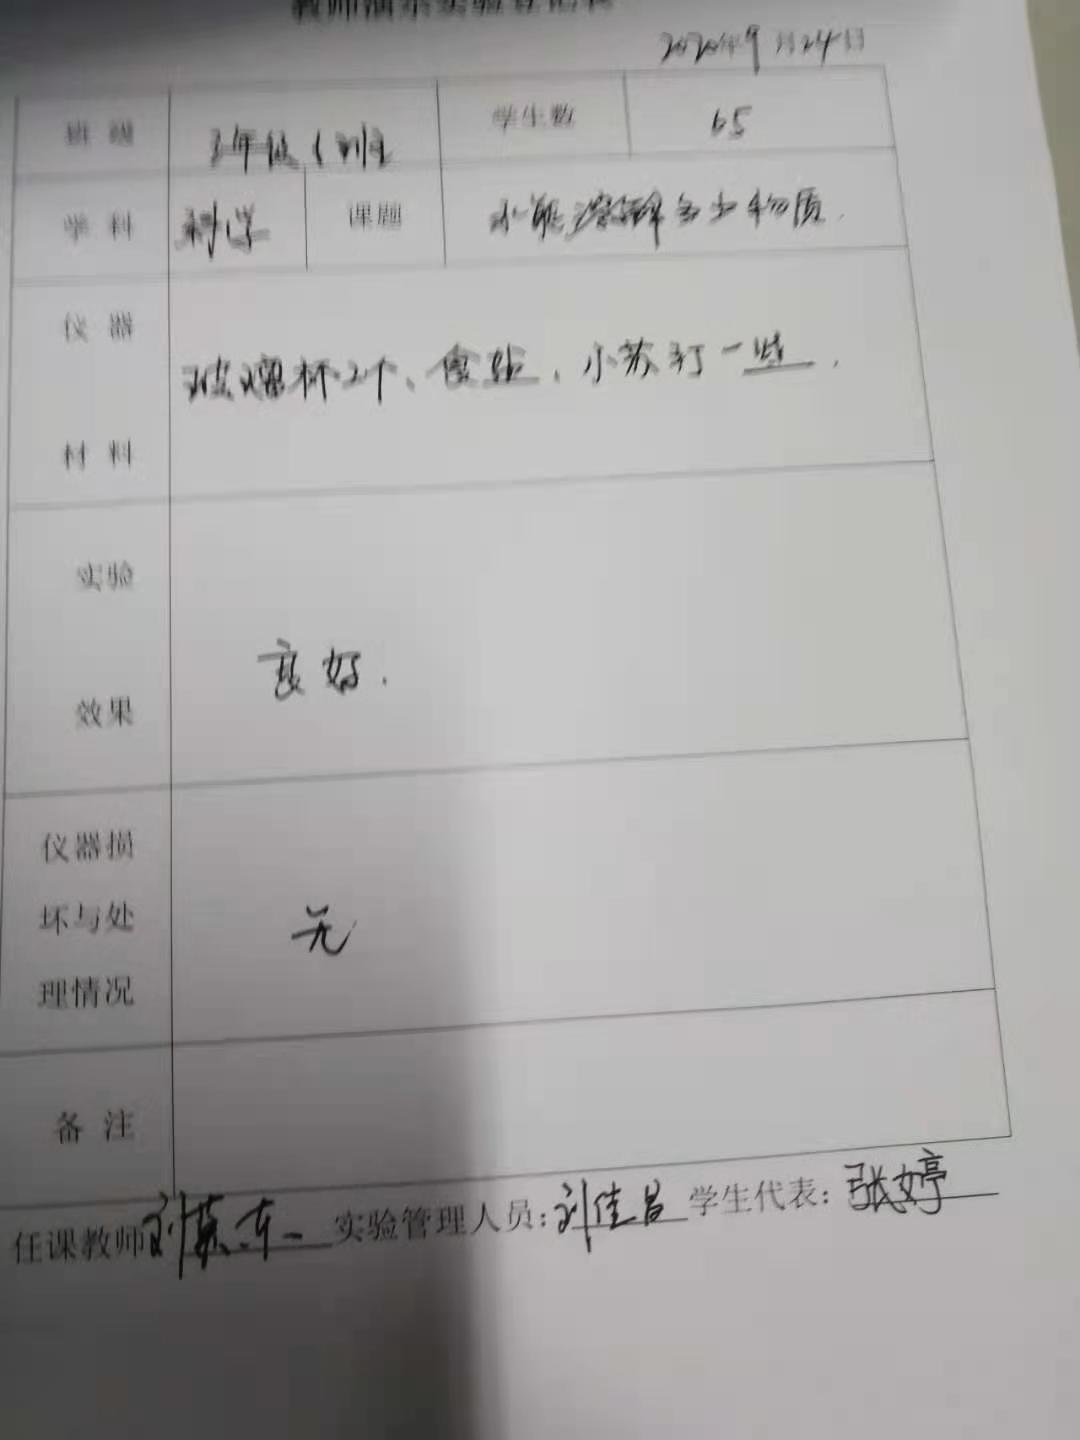 教师演示实验登记表
2020年9月24日
班级 3年级(1)班 学生数 65
学科 科学 课题 水能溶解多少物质.
仪器
玻璃杯2个、食盐、小苏打一些.
材料
实验
良好.
效果
仪器损
坏与处 无
理情况
备注
任课教师 刘 实验管理人员:刘佳昌 学生代表:张婷